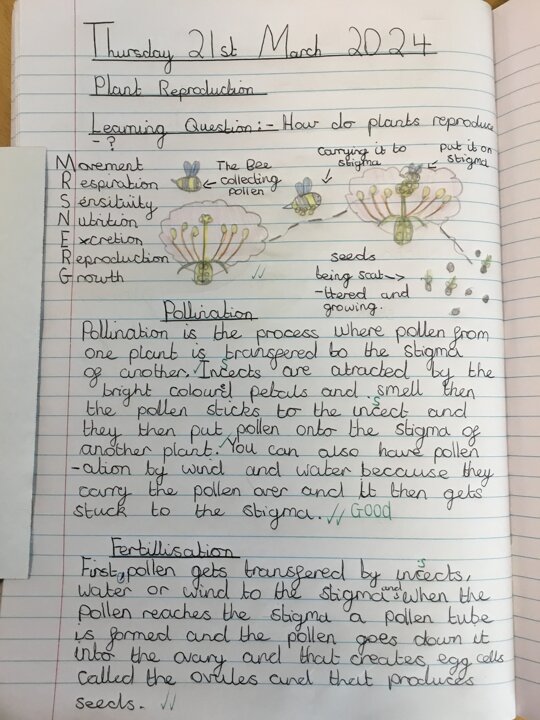 Thursday 21st March 2024
Plant Reproduction
Learning Question:- How do plants reproduce
- ?
Movement
Respiration
Sensitivity
Nutrition
Excretion
Reproduction
Growth
The Bee
collecting
pollen
Carrying it to
stigma
put it on
stigma
seeds
being scat-
-ttered and
growing.
Pollination
Pollination is the process where pollen from
one plant is transfered to the stigma
of another. Insects are atracted by the
bright colour petals and smell then
the pollen sticks to the insect and
they then put pollen onto the stigma of
another plant. You can also have pollen
-ation by wind and water because they
carry the pollen over and it then gets
stuck to the stigma. Good
Fertillisation
First, pollen gets transfered by insects,
water or wind to the stigma and when the
pollen reaches the stigma a pollen tube
is formed and the pollen goes down it
into the ovary and that creates egg cells
called the ovules and that produces
seeds.